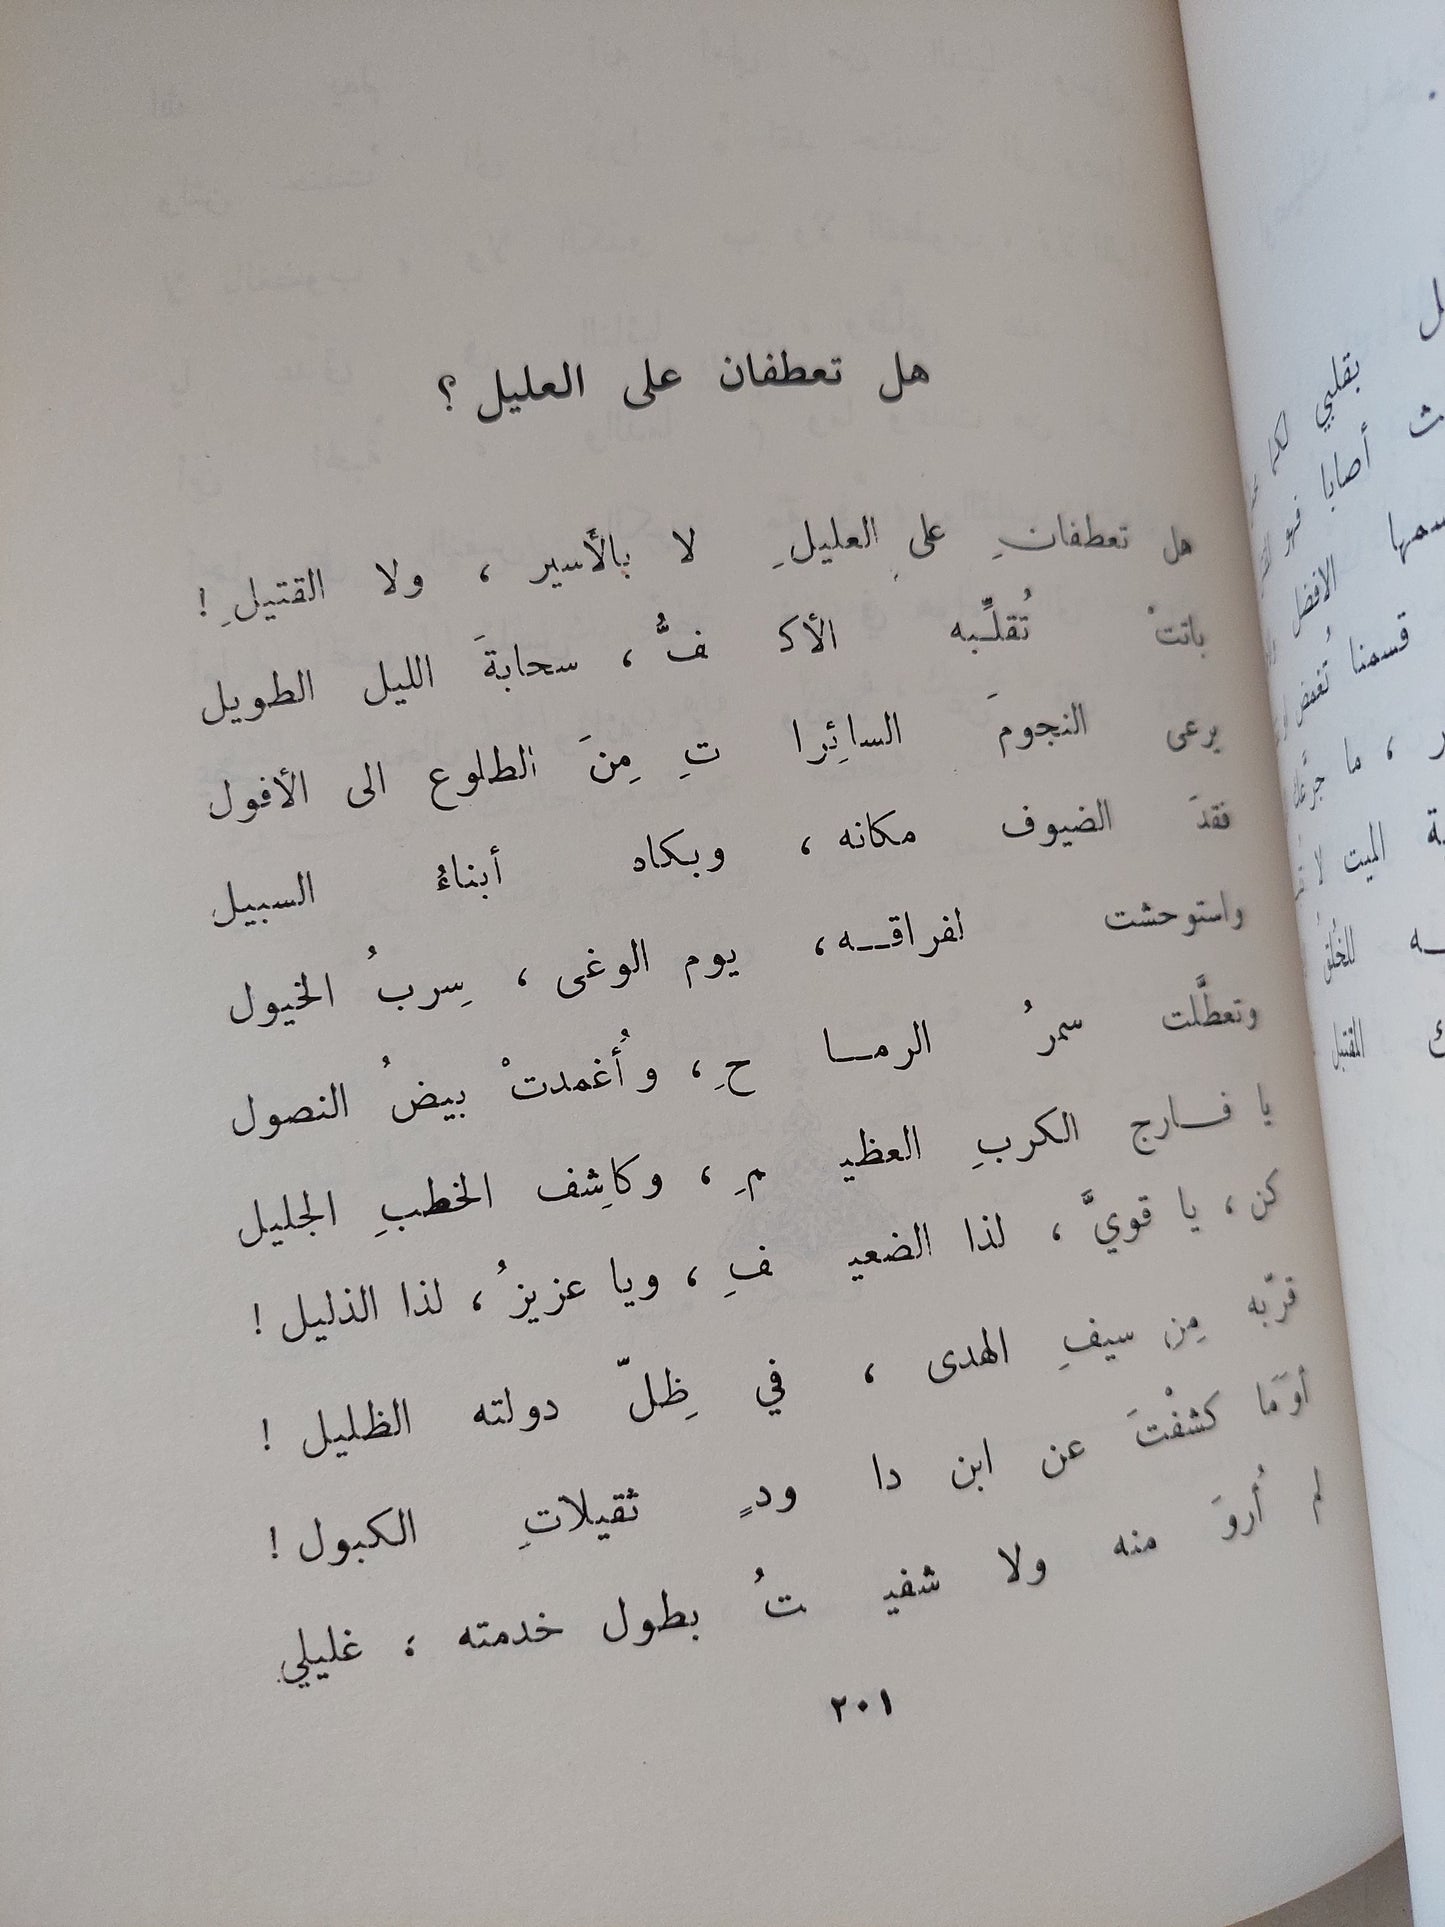 هل تعطفان على العليل ؟
هل تعطفانِ على العليلِ لا بالأسير ، ولا القتيلِ !
باتتْ تُقلِّبه الأكـ ـفُّ ، سحابةَ الليل الطويل
يرعى النجومَ السائِرا تِ مِنَ الطلوع الى الأفول
فقدَ الضيوف مكانه ، وبكاه أبناءُ السبيل
واستوحشت لفراقــه ، يوم الوغى ، سِربُ الخيول
وتعطَّلت سمرُ الرمــا حِ ، وأُغمدتْ بيضُ النصول
يا فــارج الكربِ العظيـ ـمِ ، وكاشِف الخطبِ الجليل
كن ، يا قويَّ ، لذا الضعيـ ـفِ ، ويا عزيزُ ، لذا الذليل !
قرّبه مِن سيفِ الهدى ، في ظِلّ دولته الظليل !
أوَمَا كشفْتَ عن ابن دا ودٍ ثقيلاتِ الكبول !
لم أُروَ منه ولا شفيـ ـتُ بطول خدمته ، غليلي
٢٠١
بقلبي
أصابا فهو
الافضل
قسمنا تُغمض
، ما جرَّعك
الميت لا
للخُلق
المقتبل